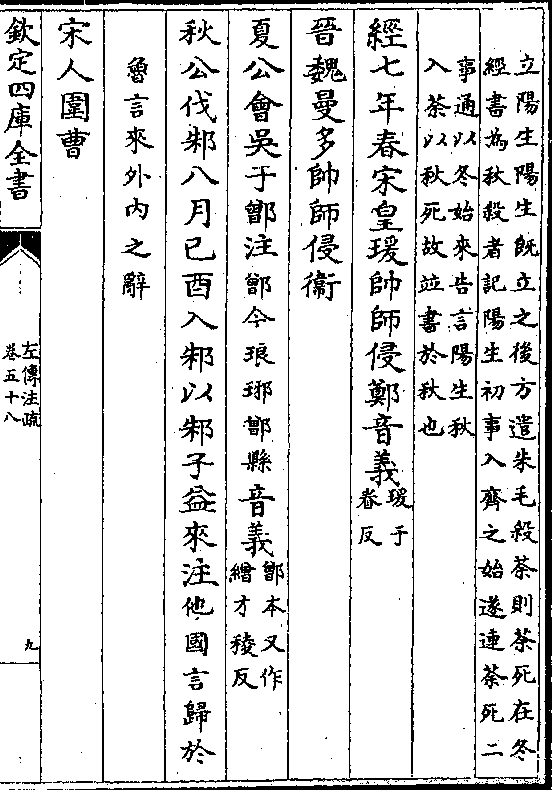 立陽生陽生既立之後方遣朱毛殺荼則荼死在冬
經書為秋殺者記陽生初事入齊之始遂連荼死二
事通以冬始來告言陽生秋
入荼以秋死故竝書於秋也
經七年春宋皇瑗帥師侵鄭音義瑗于
眷反
晉魏曼多帥師侵衞
夏公會吳于鄫注鄫今琅琊鄫縣音義鄫本又作
繒才稜反
秋公伐邾八月己酉入邾以邾子益來注他國言歸於
魯言來外內之辭
宋人圍曹
欽定四庫全書
左傳注疏
卷五十八
九